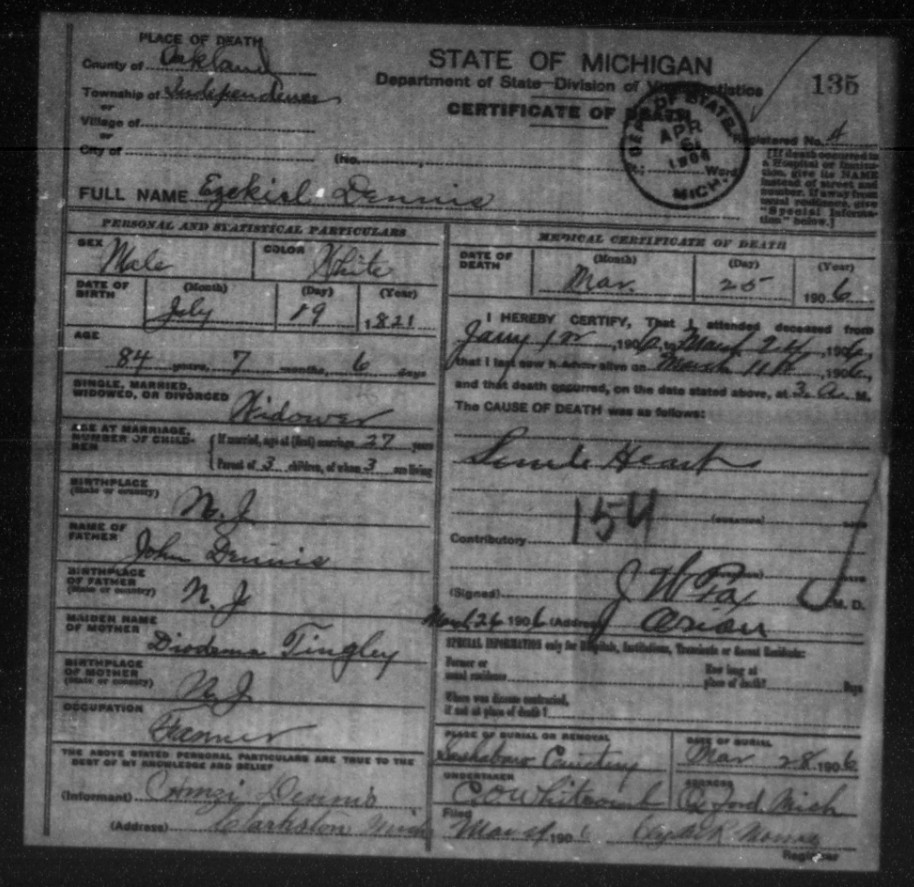 PLACE OF DEATH
County of Oakland
Township of Independence
or
Village of
or
City of
(No. , Ward)
STATE OF MICHIGAN
Department of State—Division of Vital Statistics
CERTIFICATE OF DEATH
135
DEP'T OF STATE
APR
6
1906
MICH.
Registered No. 4
[If death occurred in
a Hospital or Institu-
tion, give its NAME
instead of street and
number. If away from
usual residence, give
"Special Informa-
tion" below.]
FULL NAME Ezekiel Dennis
PERSONAL AND STATISTICAL PARTICULARS
SEX Male
COLOR White
DATE OF BIRTH
(Month) (Day) (Year)
July 19 1821
AGE
84 years, 7 months, 6 days
SINGLE, MARRIED,
WIDOWED, OR DIVORCED Widower
AGE AT MARRIAGE,
NUMBER OF CHILD-
REN
If married, age at (first) marriage 27 years
Parent of 3 children, of whom 3 are living
BIRTHPLACE
(State or country) N. J
NAME OF
FATHER John Dennis
BIRTHPLACE
OF FATHER
(State or country) N. J
MAIDEN NAME
OF MOTHER Diodema Tingley
BIRTHPLACE
OF MOTHER
(State or country) N. J.
OCCUPATION
Farmer
THE ABOVE STATED PERSONAL PARTICULARS ARE TRUE TO THE
BEST OF MY KNOWLEDGE AND BELIEF
(Informant) Dennis
(Address) Clarkston Mich
MEDICAL CERTIFICATE OF DEATH
DATE OF DEATH
(Month) (Day) (Year)
Mar. 25 1906
I HEREBY CERTIFY, That I attended deceased from
Jany 1st, 1906, to March 24, 1906,
that I last saw h alive on March 1906,
and that death occurred, on the date stated above, at 3 a. M.
The CAUSE OF DEATH was as follows:
Senile Heart
(DURATION) DAYS
154
Contributory
(DURATION) DAYS
(Signed) J W Fox M. D.
March 26 1906 (Address)
SPECIAL INFORMATION only for Hospitals, Institutions, Transients or Recent Residents:
Former or
usual residence
How long at
place of death? Days
Where was disease contracted,
if not at place of death?
PLACE OF BURIAL OR REMOVAL
Sashabaw Cemetery
DATE OF BURIAL
Mar 28 1906
UNDERTAKER
C. O. Whitcomb
ADDRESS
Oxford Mich
Filed
Mar 190
Registrar